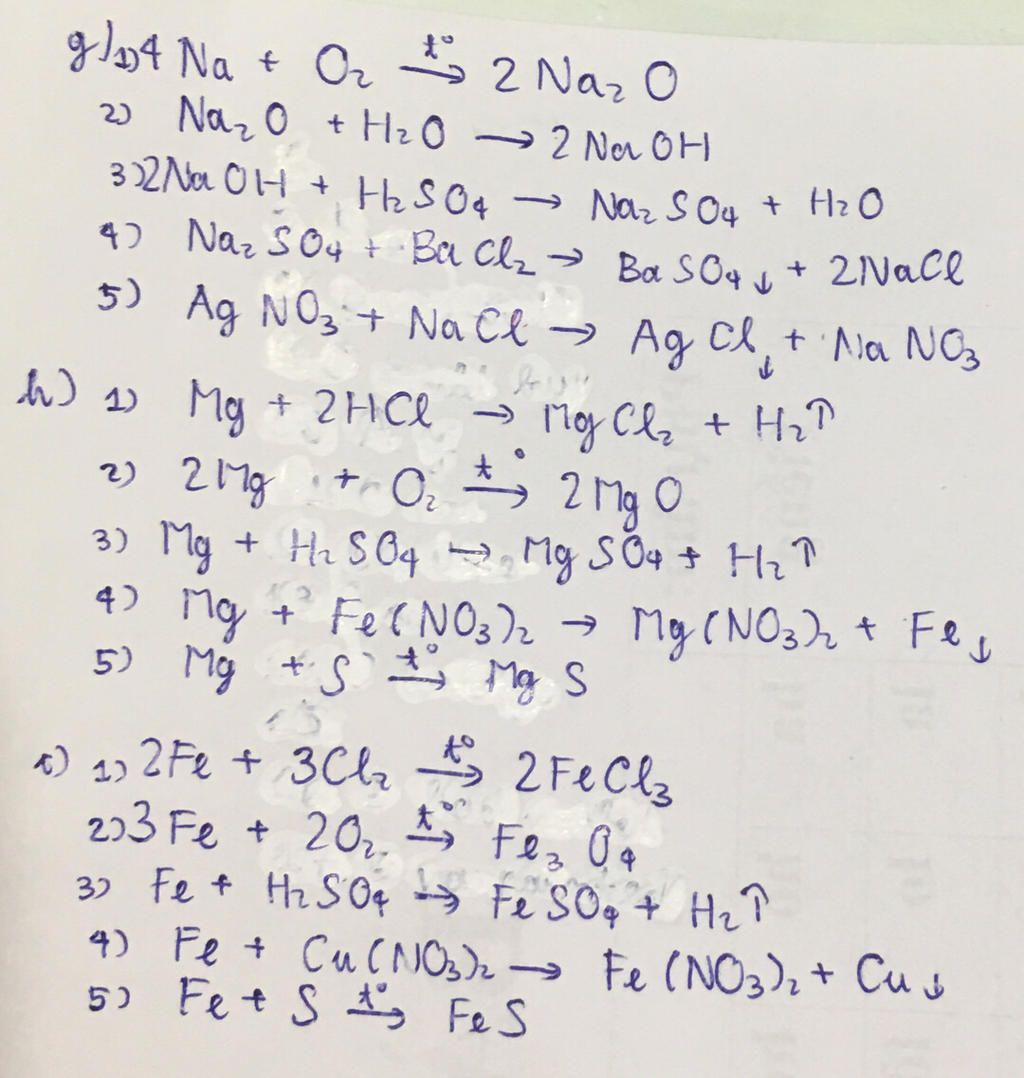 g) 1) 4 Na + O₂ →(t°) 2 Na₂O
2) Na₂O + H₂O → 2 NaOH
3) 2NaOH + H₂SO₄ → Na₂SO₄ + H₂O
4) Na₂SO₄ + BaCl₂ → BaSO₄↓ + 2NaCl
5) AgNO₃ + NaCl → AgCl↓ + NaNO₃
h) 1) Mg + 2HCl → MgCl₂ + H₂↑
2) 2Mg + O₂ →(t°) 2MgO
3) Mg + H₂SO₄ → MgSO₄ + H₂↑
4) Mg + Fe(NO₃)₂ → Mg(NO₃)₂ + Fe↓
5) Mg + S →(t°) MgS
i) 1) 2Fe + 3Cl₂ →(t°) 2FeCl₃
2) 3Fe + 2O₂ →(t°) Fe₃O₄
3) Fe + H₂SO₄ → FeSO₄ + H₂↑
4) Fe + Cu(NO₃)₂ → Fe(NO₃)₂ + Cu↓
5) Fe + S →(t°) FeS